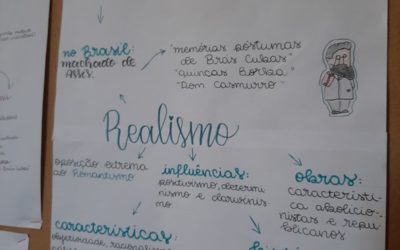 no Brasil:
machado de
Assis.
"memórias póstumas
de Bras Cubas"
"Quincas Borba"
"Dom Casmurro"
Realismo
oposição extrema
ao Romantismo
influências:
positivismo, determi-
nismo e darwinis-
mo.
obras:
característi-
ca abolicio-
nistas e repu-
blicanos
características:
objetividade, racionalismo